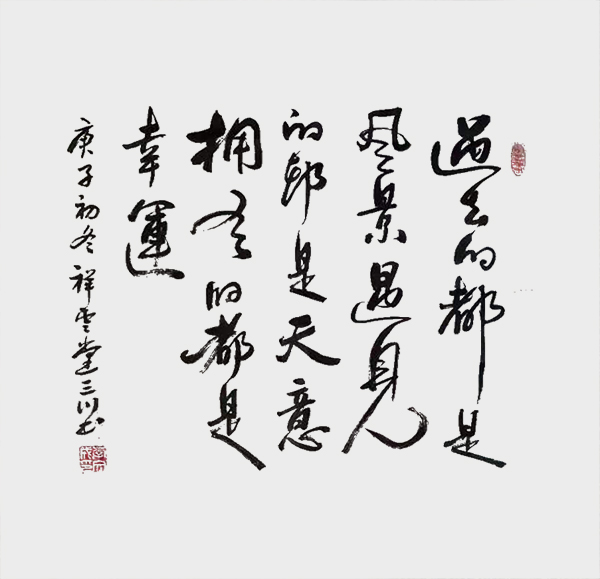 過去的都是
风景遇見
的都是天意
拥有的都是
幸運
庚子初冬祥雲堂三川书